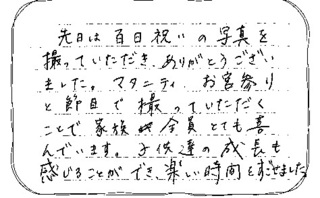 先日は百日祝いの写真を
撮っていただき、ありがとうござい
ました。マタニティ、お宮参り
と節目で撮っていただく
ことで家族全員とても喜
んでいます。子供達の成長も
感じることができ、楽しい時間をすごせました